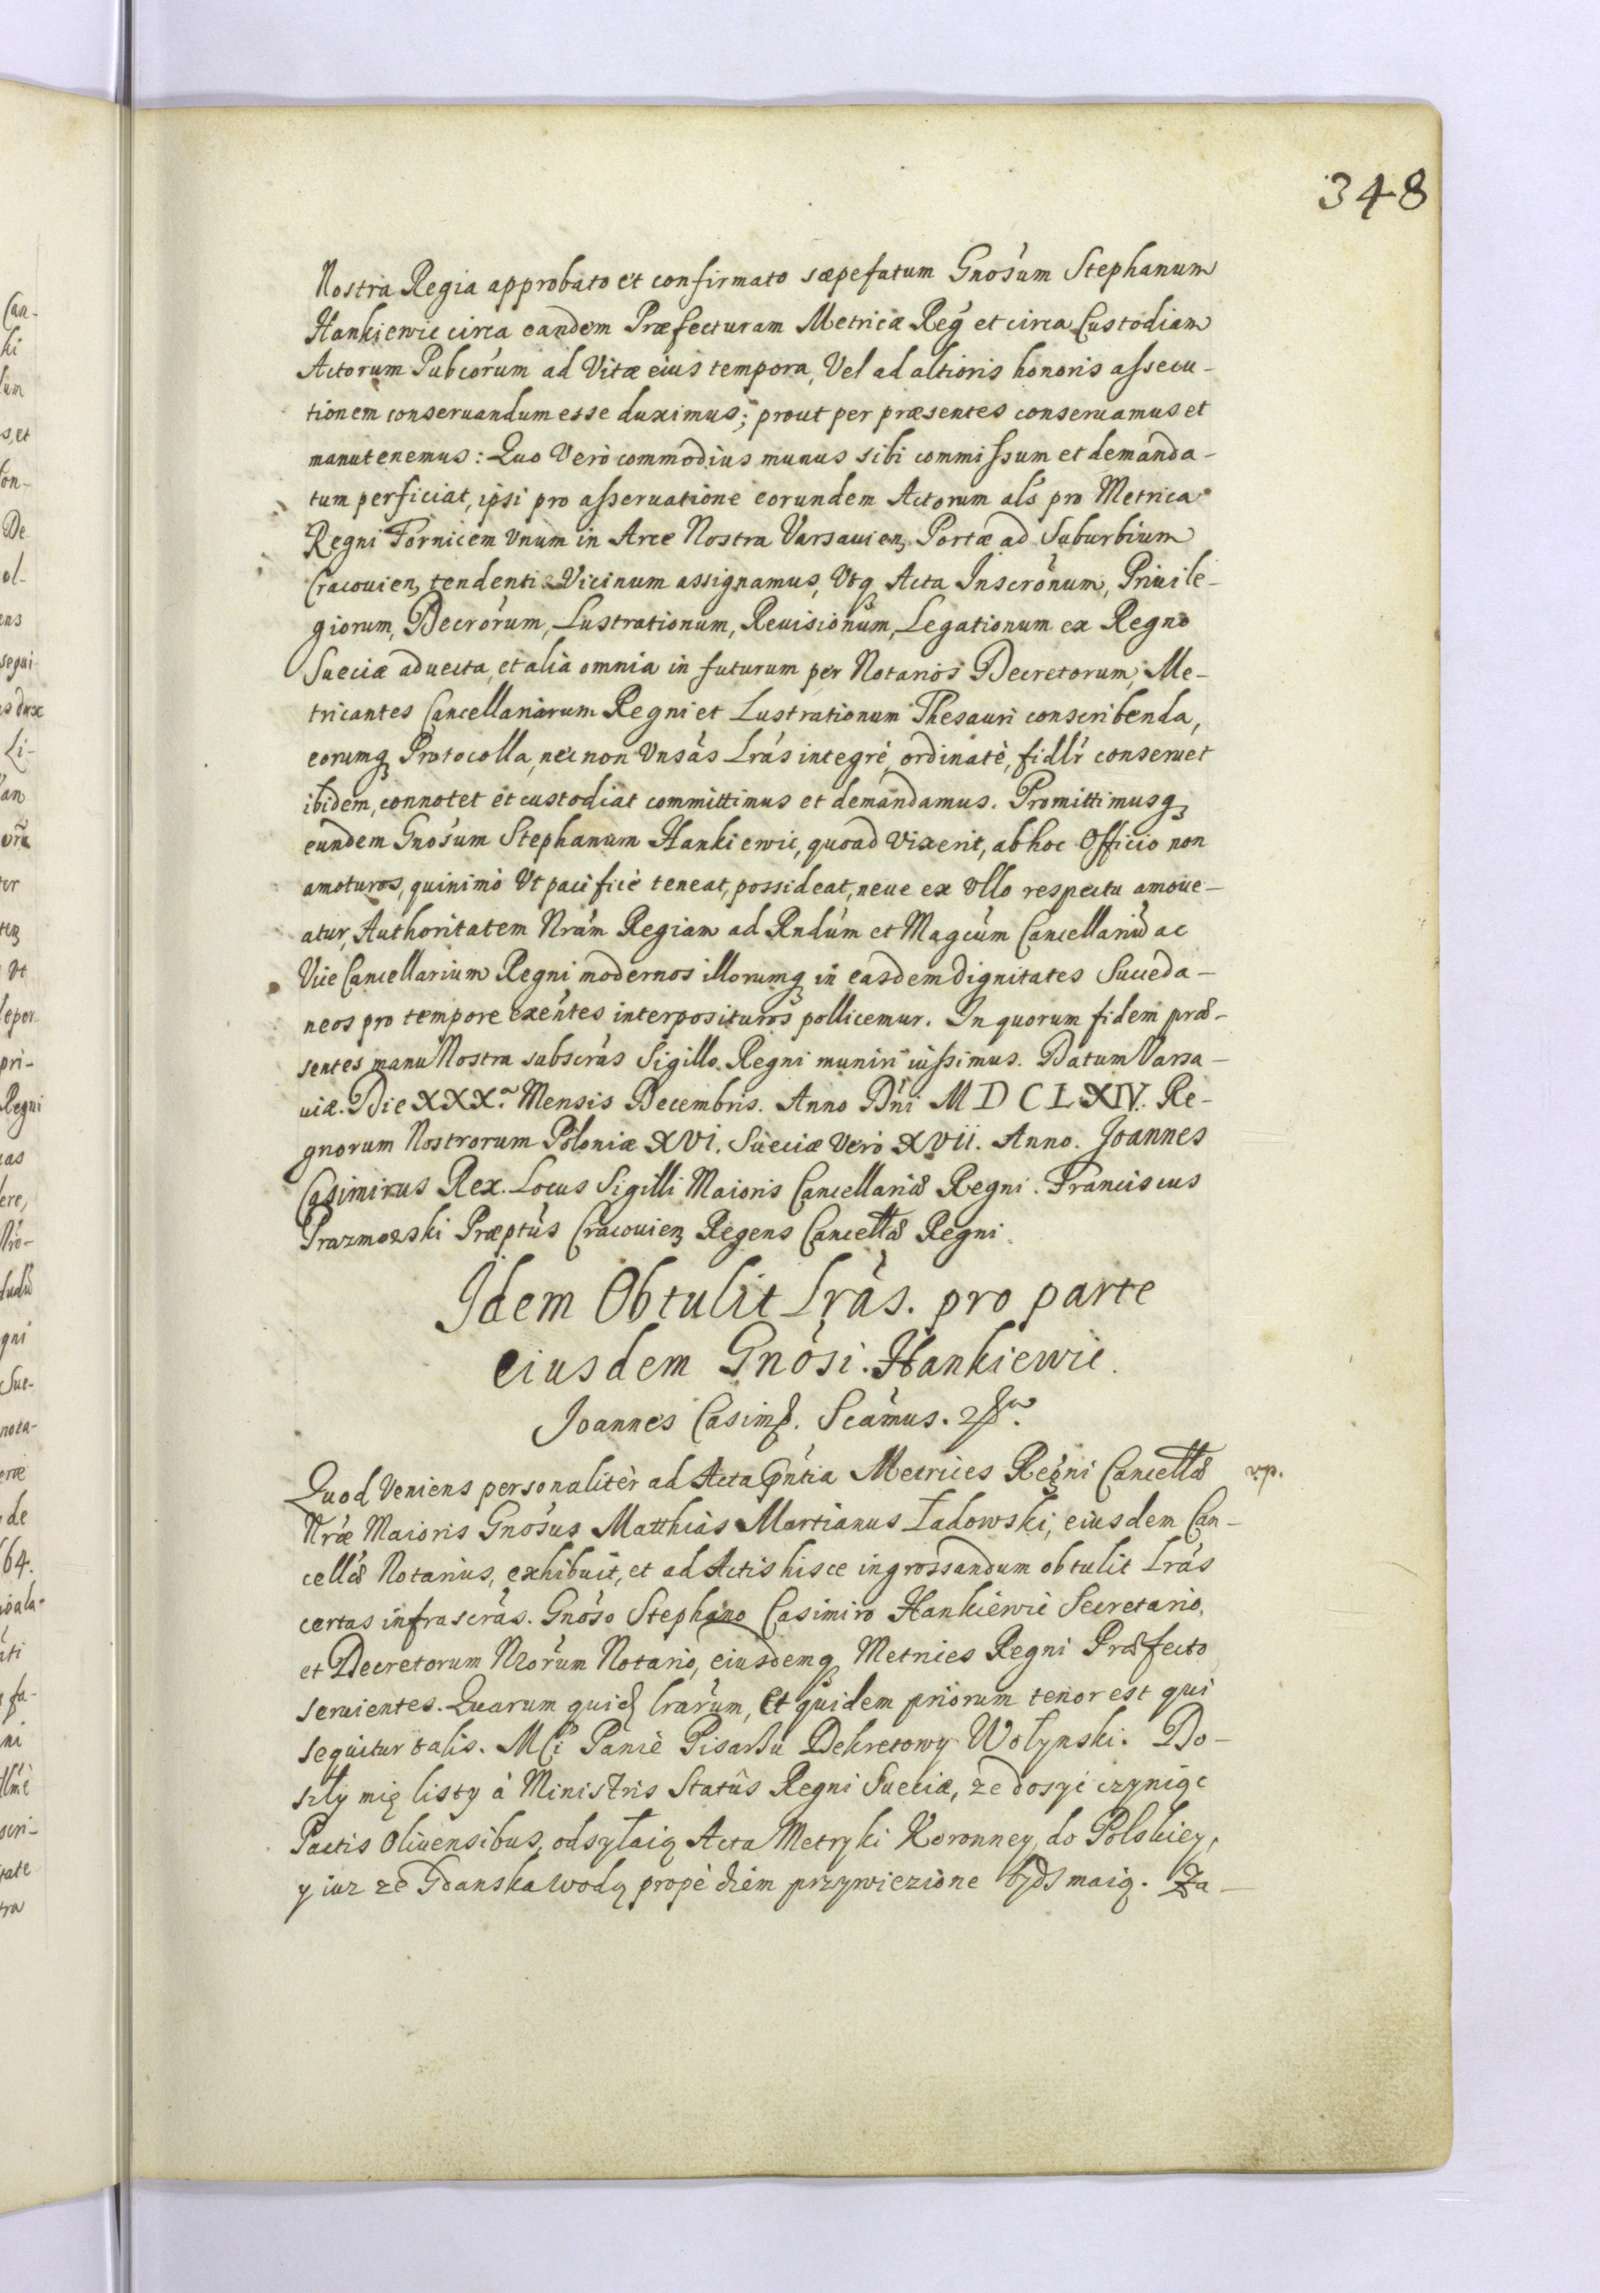 348
Nostra Regia approbato et confirmato sæpefatum Gnosum Stephanum
Hankiewic circa eandem Præfecturam Metricæ Reg et circa Custodiam
Actorum Pubcorum ad Vitæ eius tempora, Vel ad altioris honoris assecu-
tionem conseruandum esse duximus; prout per præsentes conseruamus et
manutenemus: Quo Vero commodius munus sibi commissum et demanda-
tum perficiat, ipsi pro asseruatione eorundem Actorum als pro Metrica
Regni Fornicem Vnum in Arce Nostra Varsauien, Portæ ad Suburbium
Cracouien, tendenti Vicinum assignamus, Vtq Acta Inscronum, Priuile-
giorum, Decrorum, Lustrationum, Reuisionum, Legationum ex Regno
Sueciæ aduecta, et alia omnia in futurum per Notarios Decretorum, Me-
tricantes Cancellariarum Regni et Lustrationum Thesauri conscribenda,
eorumq Protocolla, nec non Vnsas Lras integrè, ordinatè, fidlr conseruet
ibidem, connotet et custodiat committimus et demandamus. Promittimusq
eundem Gnosum Stephanum Hankiewic, quoad Vixerit, ab hoc Officio non
amoturos, quinimò Vt pacificè teneat, possideat, neue ex Vllo respectu amoue-
atur, Authoritatem Nram Regiam ad Rndum et Magcum Cancellariũ ac
Vice Cancellarium Regni modernos illorumq in easdem dignitates Succeda-
neos pro tempore exentes interposituros pollicemur. In quorum fidem præ-
sentes manu Nostra subscras Sigillo Regni muniri iussimus. Datum Varsa-
uiæ. Die XXX.a Mensis Decembris. Anno Dni M D C L XIV. Re-
gnorum Nostrorum Poloniæ XVI. Sueciæ Verò XVII. Anno. Joannes
Casimirus Rex. Locus Sigilli Maioris Cancellariæ Regni. Franciscus
Prazmowski Præptus Cracouien Regens Cancellæ Regni.
Idem Obtulit Lràs. pro parte
eiusdem Gnosi. Hankiewic.
Joannes Casim. Scamus.
Quod Veniens personalitèr ad Acta Pntia Metrices Regni Cancellæ
Nræ Maioris Gnosus Matthias Martianus Ładowski, eiusdem Can-
cellæ Notarius, exhibuit, et ad Actis hisce ingrossandum obtulit Lras
certas infrascràs. Gnoso Stephano Casimiro Hankiewic Secretario,
et Decretorum Nrorum Notario, eiusdemq Metrices Regni Præfecto
seruientes. Quarum quid lrarum, et quidem priorum tenor est qui
sequitur talis. MCi Panie Pisarzu Dekretowy Wołynski. Do-
szły mię listy à Ministris Statûs Regni Sueciæ, ze dosyć czyniąc
Pactis Oliuensibus, odsyłaią Acta Metryki Koronney, do Polskiey,
y iuz ze Gdanska wodą propè diem przywiezione bydź maią. Za-